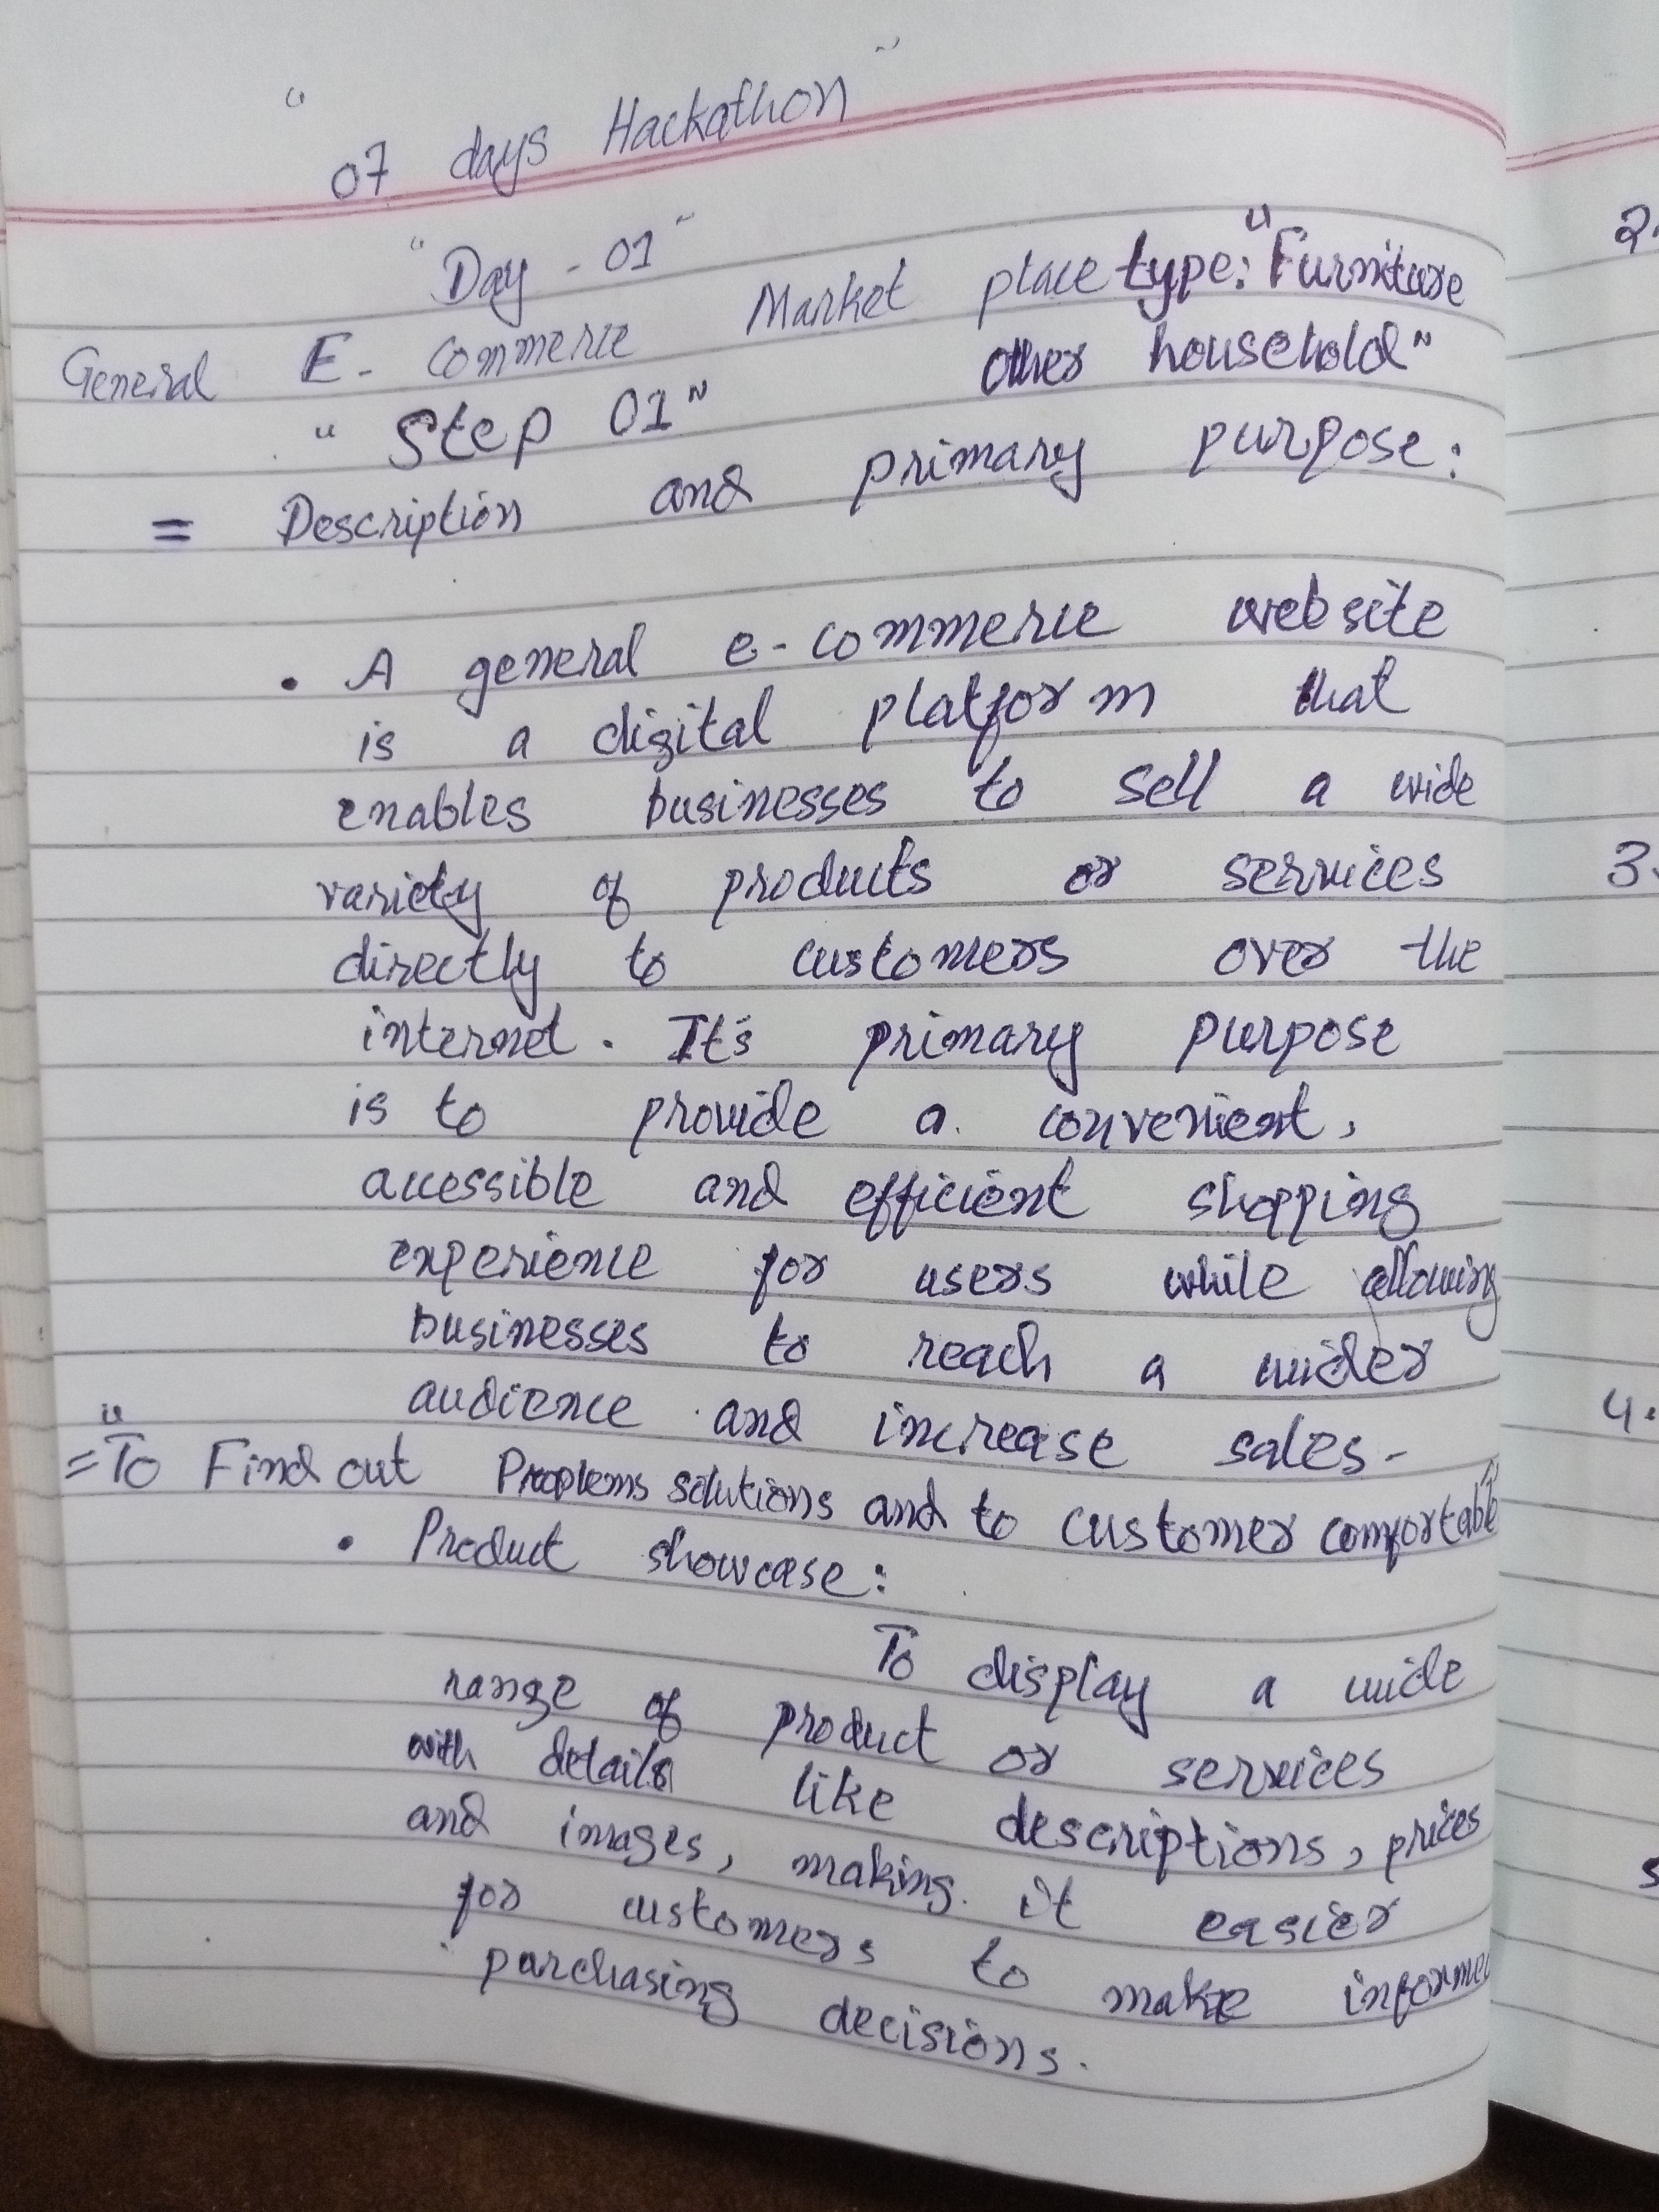 " 07 days Hackathon "
" Day - 01 "
General E-Commerce Market place type: "Furniture
other household"
" Step 01 "
= Description and primary purpose:
• A general e-commerce website
is a digital platform that
enables businesses to sell a wide
variety of products or services
directly to customers over the
internet. It's primary purpose
is to provide a convenient,
accessible and efficient shopping
experience for users while allowing
businesses to reach a wider
audience and increase sales.
= "To Find out Proplems solutions and to customer comfortable"
• Product showcase:
To display a wide
range of product or services
with details like descriptions, prices
and images, making it easier
for customers to make informed
purchasing decisions.
2.
3.
4.
5